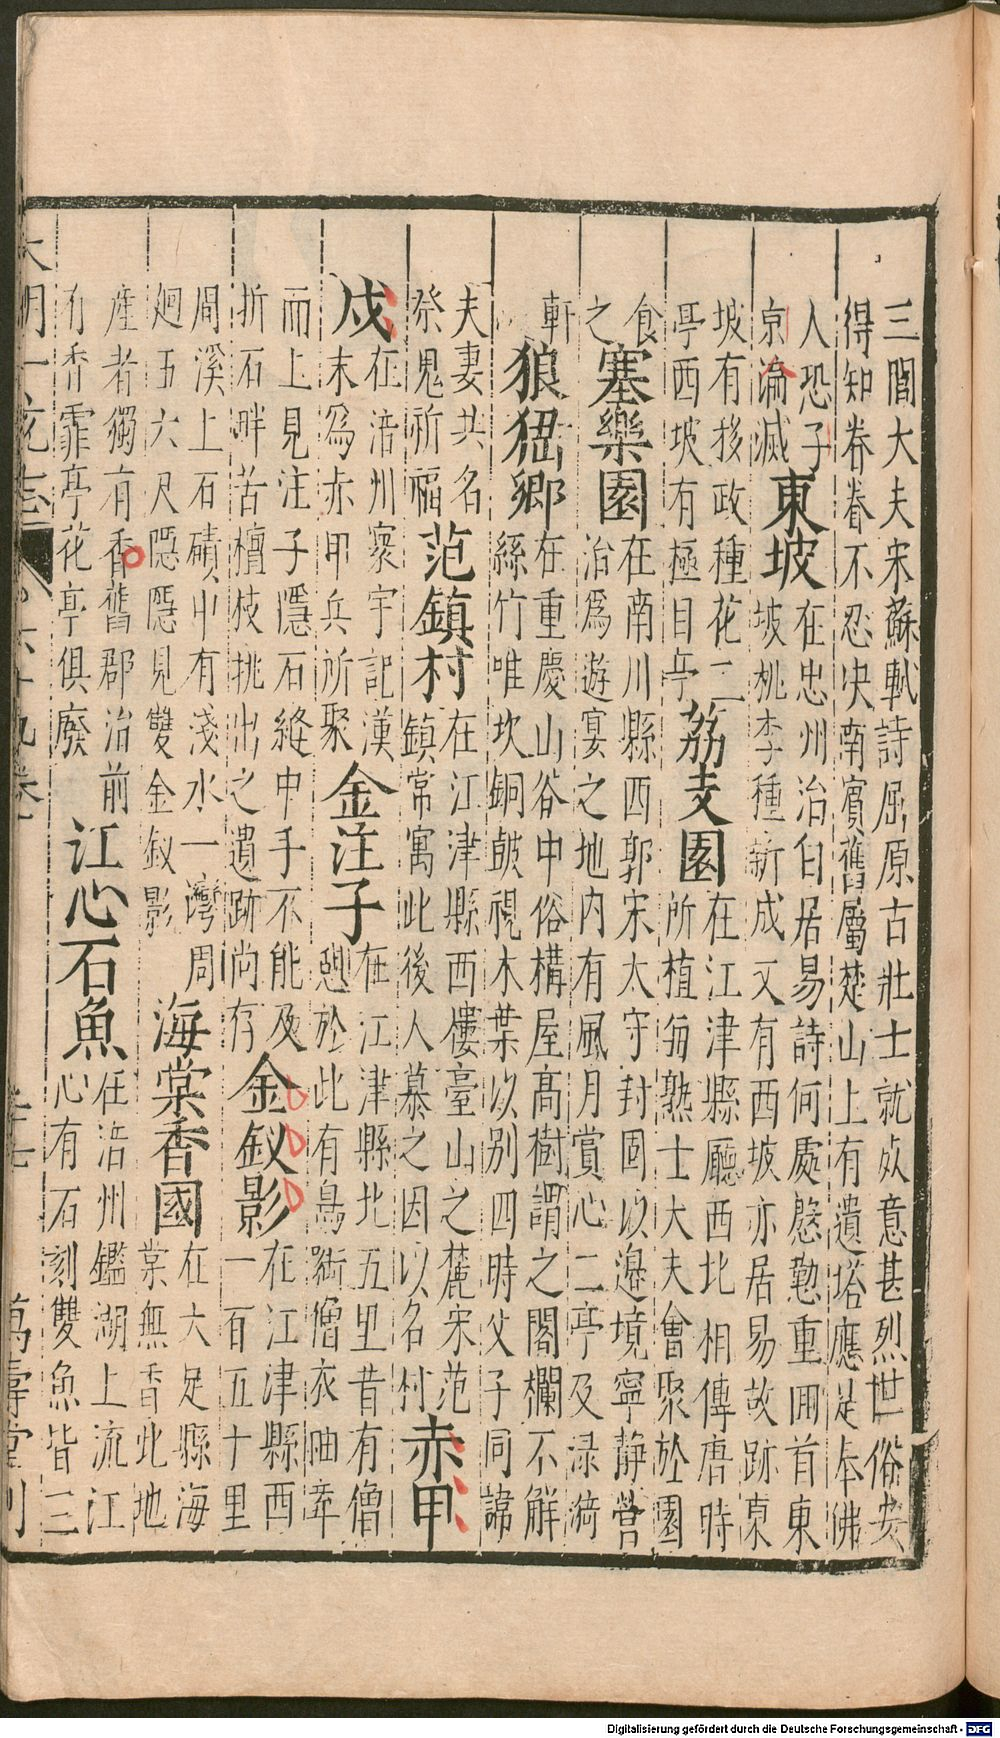 三閭大夫宋蘇軾詩屈原古壯士就死意甚烈世俗安
得知眷眷不忍决南賓舊屬楚山上有遺塔應是奉佛
人恐子
京淪滅
東坡
在忠州治白居易詩何處慇懃重回首東
坡桃李種新成又有西坡亦居易故跡東
坡有移政種花二
亭西坡有極目亭
荔支園
在江津縣廳西北相傳唐時
所植每熟士大夫會聚於園
食
之
塞樂園
在南川縣西郭宋太守封囿以邊境寧靜營
治爲遊宴之地内有風月賞心二亭及渌漪
軒
狼鄉
在重慶山谷中俗構屋高樹謂之閣欄不解
絲竹唯坎銅皷視木葉以别四時父子同諱
夫妻共名
祭鬼祈福
范鎮村
在江津縣西樓臺山之麓宋范
鎮常寓此後人慕之因以名村
赤甲
戍
在涪州寰宇記漢
末爲赤甲兵所聚
金注子
在江津縣北五里昔有僧
憩於此有鳥銜僧衣岫牽
而上見注子隱石縫中手不能及
折石畔苦檀枝挑出之遺跡尚存
金釵影
在江津縣西
一百五十里
周溪上石磧中有淺水一灣周
廻五六尺隱隱見雙金釵影
海棠香國
在大足縣海
棠無香此地
産者獨有香舊郡治前
有香霏亭花亭俱廢
江心石魚
在涪州鑑湖上流江
心有石刻雙魚皆三
大明一統志 六十九卷 萬壽堂刊
Digitalisierung gefördert durch die Deutsche Forschungsgemeinschaft - DFG